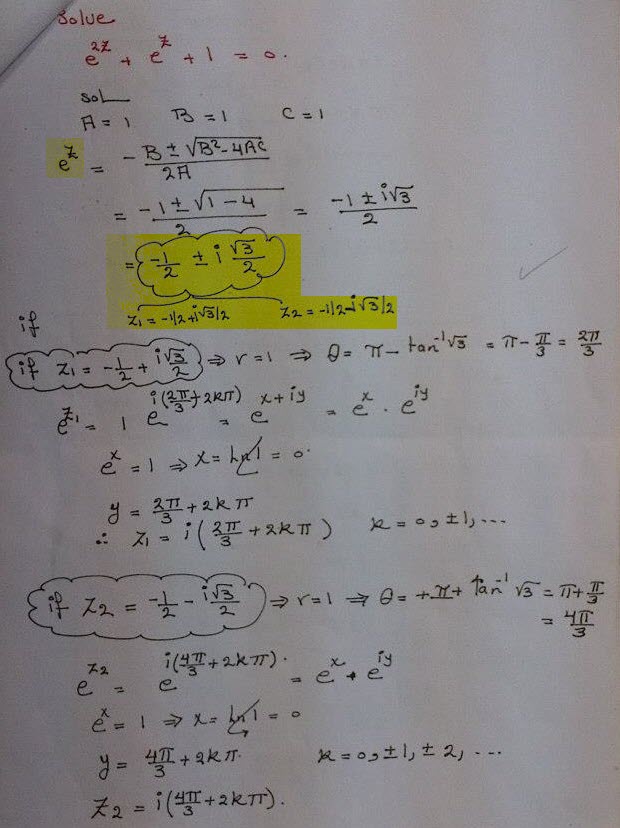 Solve
e^{2z} + e^{z} + 1 = 0.
Sol
A = 1 B = 1 C = 1
e^{z} = \frac{-B ± \sqrt{B^2 - 4AC}}{2A}
= \frac{-1 ± \sqrt{1 - 4}}{2} = \frac{-1 ± i\sqrt{3}}{2}
= \frac{-1}{2} ± i \frac{\sqrt{3}}{2}
z_1 = -1/2 + i\sqrt{3}/2 z_2 = -1/2 - i\sqrt{3}/2
if
if z_1 = -\frac{1}{2} + \frac{i\sqrt{3}}{2} ⇒ r = 1 ⇒ θ = π - tan^{-1}\sqrt{3} = π - \frac{π}{3} = \frac{2π}{3}
e^{z_1} = 1 e^{i(\frac{2π}{3} + 2kπ)} = e^{x + iy} = e^{x} . e^{iy}
e^{x} = 1 ⇒ x = Ln 1 = 0.
y = \frac{2π}{3} + 2kπ
∴ z_1 = i(\frac{2π}{3} + 2kπ) k = 0, ±1, ...
if z_2 = \frac{-1}{2} - \frac{i\sqrt{3}}{2} ⇒ r = 1 ⇒ θ = +π + tan^{-1} \sqrt{3} = π + \frac{π}{3}
= \frac{4π}{3}
e^{z_2} = e^{i(\frac{4π}{3} + 2kπ)}. = e^{x} . e^{iy}
e^{x} = 1 ⇒ x = Ln 1 = 0
y = \frac{4π}{3} + 2kπ. k = 0, ±1, ±2, ...
z_2 = i(\frac{4π}{3} + 2kπ).